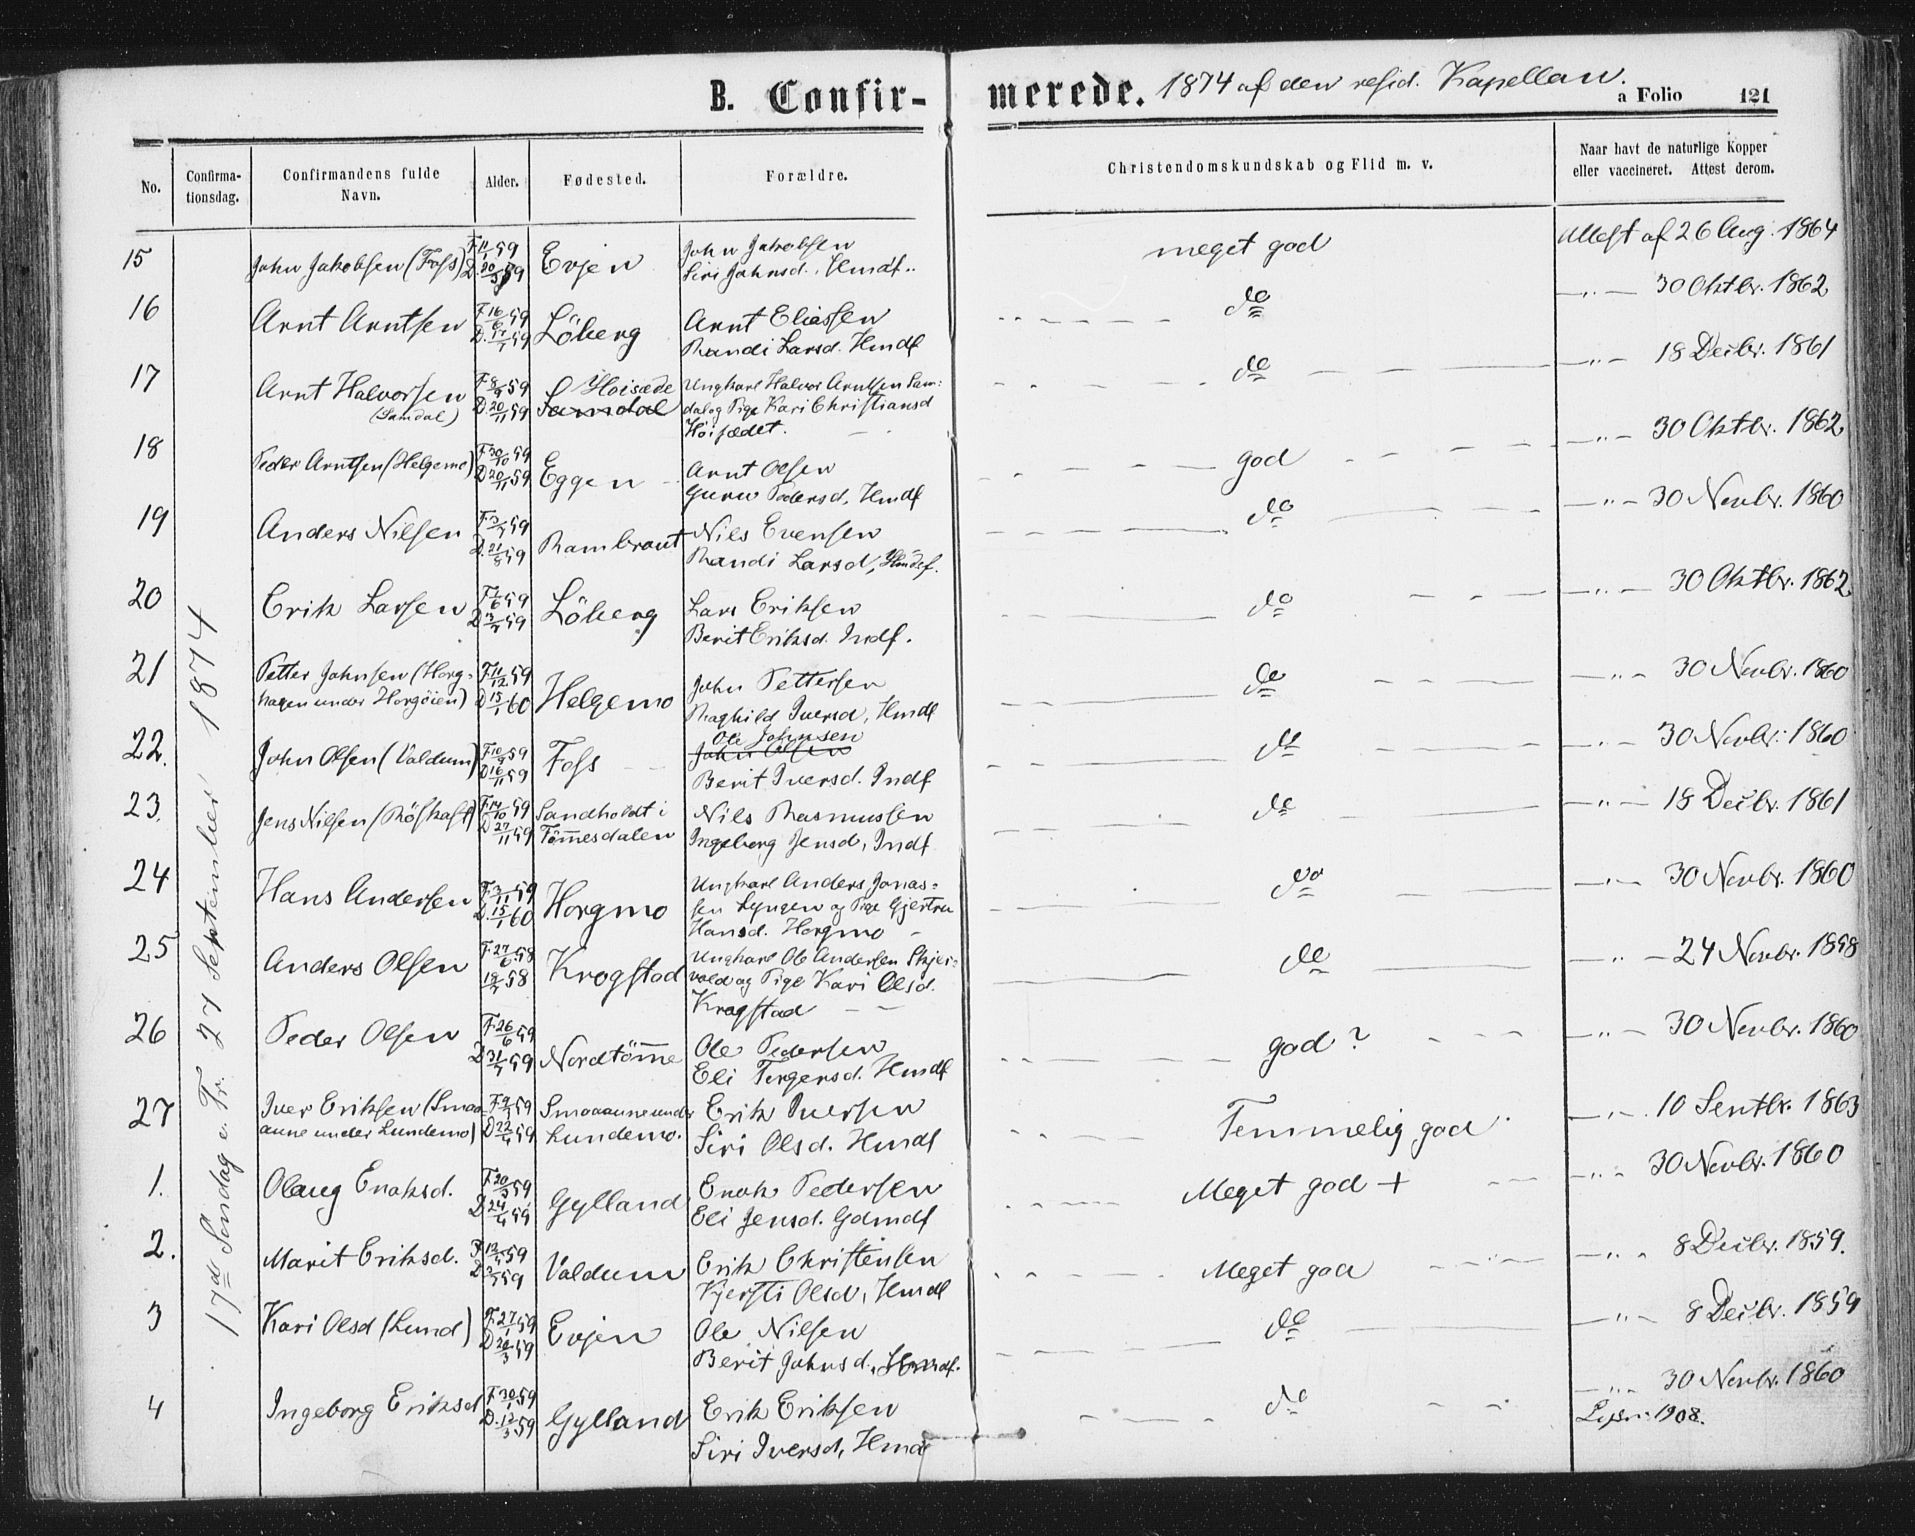 B. Confir-merede. 1874 af den resid. Kapellan.
a Folio 121
No. Confirma-tionsdag. Confirmandens fulde Navn. Alder. Fødested. Forældre. Christendomskundskab og Flid m. v. Naar havt de naturlige Kopper eller vaccineret. Attest derom.
17de Søndag e. Tr. 27 September 1874
15 John Jakobsen (Foss) Evjen John Jakobsen meget god Attest af 26 Aug. 1864
Siri Johnsd., Hmdf.
16 Arnt Arntsen F. 16/6 59 Löberg Arnt Eliassen do — „ — 30 Oktbr. 1862
Randi Larsd. Hmdf
17 Arnt Halvorsen F 8/9 59 Hoisæde Ungkarl Halvor Arntsen Sam- do — „ — 18 Decbr. 1861
(Samdal) D 20/11 59 Samdal dal og Pige Kari Christiansd
Höisædet.
18 Peder Arntsen (Helgemo) F 30/10 59 Eggen Arnt Olsen god — „ — 30 Oktbr. 1862
D 20/11 59 Guru Pedersd, Hmdf
19 Anders Nilsen Rambraut Nils Evensen do — „ — 30 Novbr. 1860
Randi Larsd, Hmdf.
20 Erik Larsen Löberg Lars Eriksen do — „ — 30 Oktbr. 1862
Berit Eriksd. Indf.
21 Petter Johnsen (Horg- F 11/12 59 Helgemo John Pettersen do — „ — 30 Novbr. 1860
hagen under Horgöien) D 15/1 60 Raghild Iversd, Hmdf
22. John Olsen (Valdum) Foss Ole Johnsen do — „ — 30 Novbr. 1860
D 16/11 59 John Olsen
Berit Iversd. Indf
23. Jens Nilsen (Röskaft) F 14/10 59 Sandholdt i Nils Rasmussen do — „ — 18 Decbr. 1861
D 27/11 59 Tömmesdalen Ingeborg Jensd, Indf
24 Hans Andersen Horgmo Ungkarl Anders Jonas- do — „ — 30 Novbr. 1860
D. 15/1 60 sen Lyngen og Pige Gjertru
Hansd. Horgmo
25 Anders Olsen F. 27/6 58 Krogstad Ungkarl Ole Andersen Skjer- do — „ — 24 Novbr. 1858
18/7 58 vold og Pige Kari Olsd.
Krogstad
26 Peder Olsen F 26/6 59 Nordtömme Ole Pedersen god? — „ — 30 Novbr. 1860
D 31/7 59 Eli Tergersd. Hmdf
27 Iver Eriksen (Smaa- Smaaaune under Erik Iversen Temmelig god — „ — 10 Sentbr. 1863
aune under Lundemo) D 22/4 59 Lundemo. Siri Olsd. Hmdf
1. Olaug Enoksd. F 20/3 59 Gylland Enok Pedersen Meget god + — „ — 30 Novbr. 1860
D 24/4 59 Eli Jensd. Gdmdf
2. Marit Eriksd. Valdum Erik Christensen Meget god — „ — 8 Decbr. 1859.
Kjersti Olsd, Hmdf
3 Kari Olsd (Lund) F. 27/1 59 Evjen Ole Nilsen do — „ — 8 Decbr. 1859
D 20/3 59 Berit Johnsd., Hmdf.
4 Ingeborg Eriksd F. 30/1 59 Gylland Erik Eriksen do — „ — 30 Novbr. 1860
D. 13/3 59 Siri Iversd, Hmdf 1908.